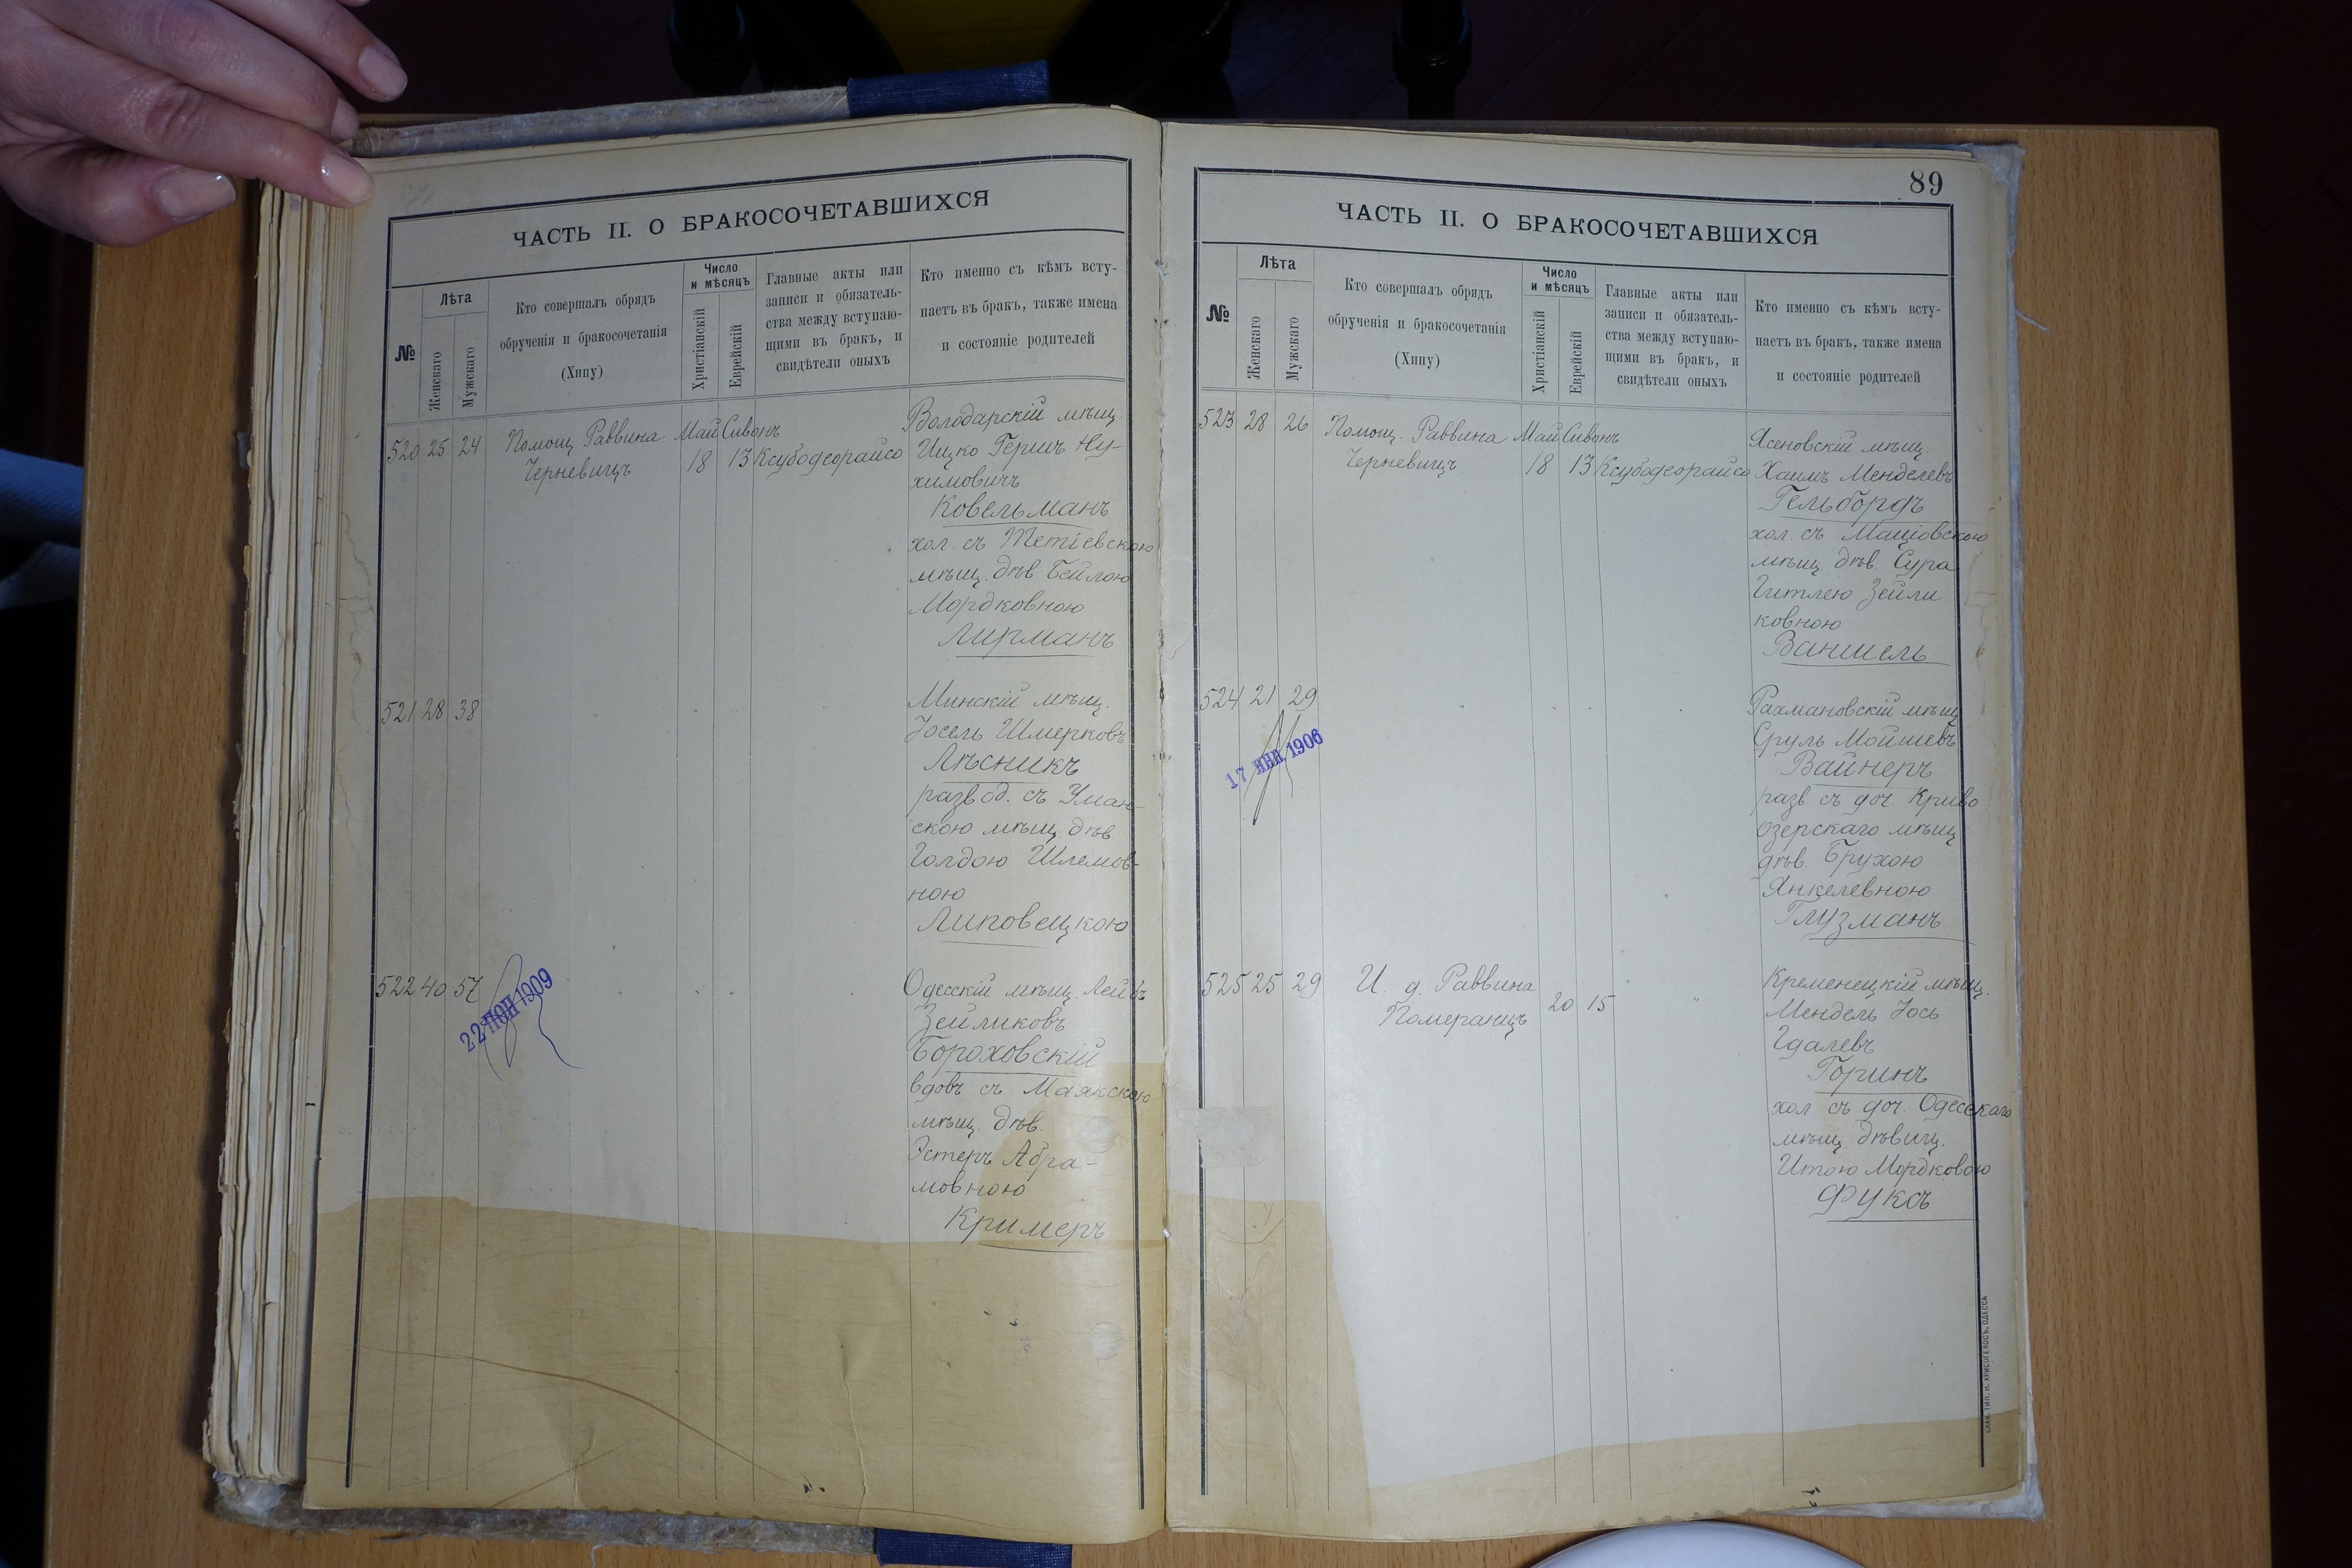 ЧАСТЬ II. О БРАКОСОЧЕТАВШИХСЯ
№
Лѣта
Женскаго
Мужскаго
Кто совершалъ обрядъ
обрученія и бракосочетанія
(Хипу)
Число
и мѣсяцъ
Христіанскій
Еврейскій
Главные акты или
записи и обязатель-
ства между вступаю-
щими въ бракъ, и
свидѣтели оныхъ
Кто именно съ кѣмъ всту-
паетъ въ бракъ, также имена
и состояніе родителей
520 25 24
Помощ. Раввина
Черневицъ
Май Сивонъ
18 13
Ксубодеорайсо
Володарскій мѣщ.
Ицко Гершъ Ну-
химовичъ
Ковельманъ
хол. съ Тетіевскою
мѣщ. дѣв. Бейлою
Мордковною
Лирманъ
521 28 38
Минскій мѣщ.
Іосель Шмерковъ
Лѣсникъ
развод. съ Уман-
скою мѣщ. дѣв.
Голдою Шлемов-
ною
Липовецкою
522 40 57
22 ІЮН 1909
Одесскій мѣщ. Лейбъ
Зейликовъ
Бороховскій
вдовъ съ Маякскою
мѣщ. дѣв.
Эстеръ Абра-
мовною
Кримеръ
89
ЧАСТЬ II. О БРАКОСОЧЕТАВШИХСЯ
№
Лѣта
Женскаго
Мужскаго
Кто совершалъ обрядъ
обрученія и бракосочетанія
(Хипу)
Число
и мѣсяцъ
Христіанскій
Еврейскій
Главные акты или
записи и обязатель-
ства между вступаю-
щими въ бракъ, и
свидѣтели оныхъ
Кто именно съ кѣмъ всту-
паетъ въ бракъ, также имена
и состояніе родителей
523 28 26
Помощ. Раввина
Черневицъ
Май Сивонъ
18 13
Ксубодеорайсо
Ясеновскій мѣщ.
Хаимъ Менделевъ
Гельбордъ
хол. съ Маціовскою
мѣщ. дѣв. Сура
Гитлею Зейли
ковною
Ваншель
524 21 29
17 ЯНВ 1906
Рахмановскій мѣщ
Сруль Мойшевъ
Вайнеръ
разв. съ доч. Криво
озерскаго мѣщ
дѣв Брухою
Янкелевною
Глузманъ
525 25 29
И. д. Раввина
Померанцъ
20 15
Кременецкій мѣщ.
Мендель Іось
Гдалевъ
Горинъ
хол. съ доч. Одесскаго
мѣщ. дѣвиц.
Итою Мордковою
Фуксъ
СКЛ. ТИП. Н. ХРИСОГЕЛОСЪ. ОДЕССА